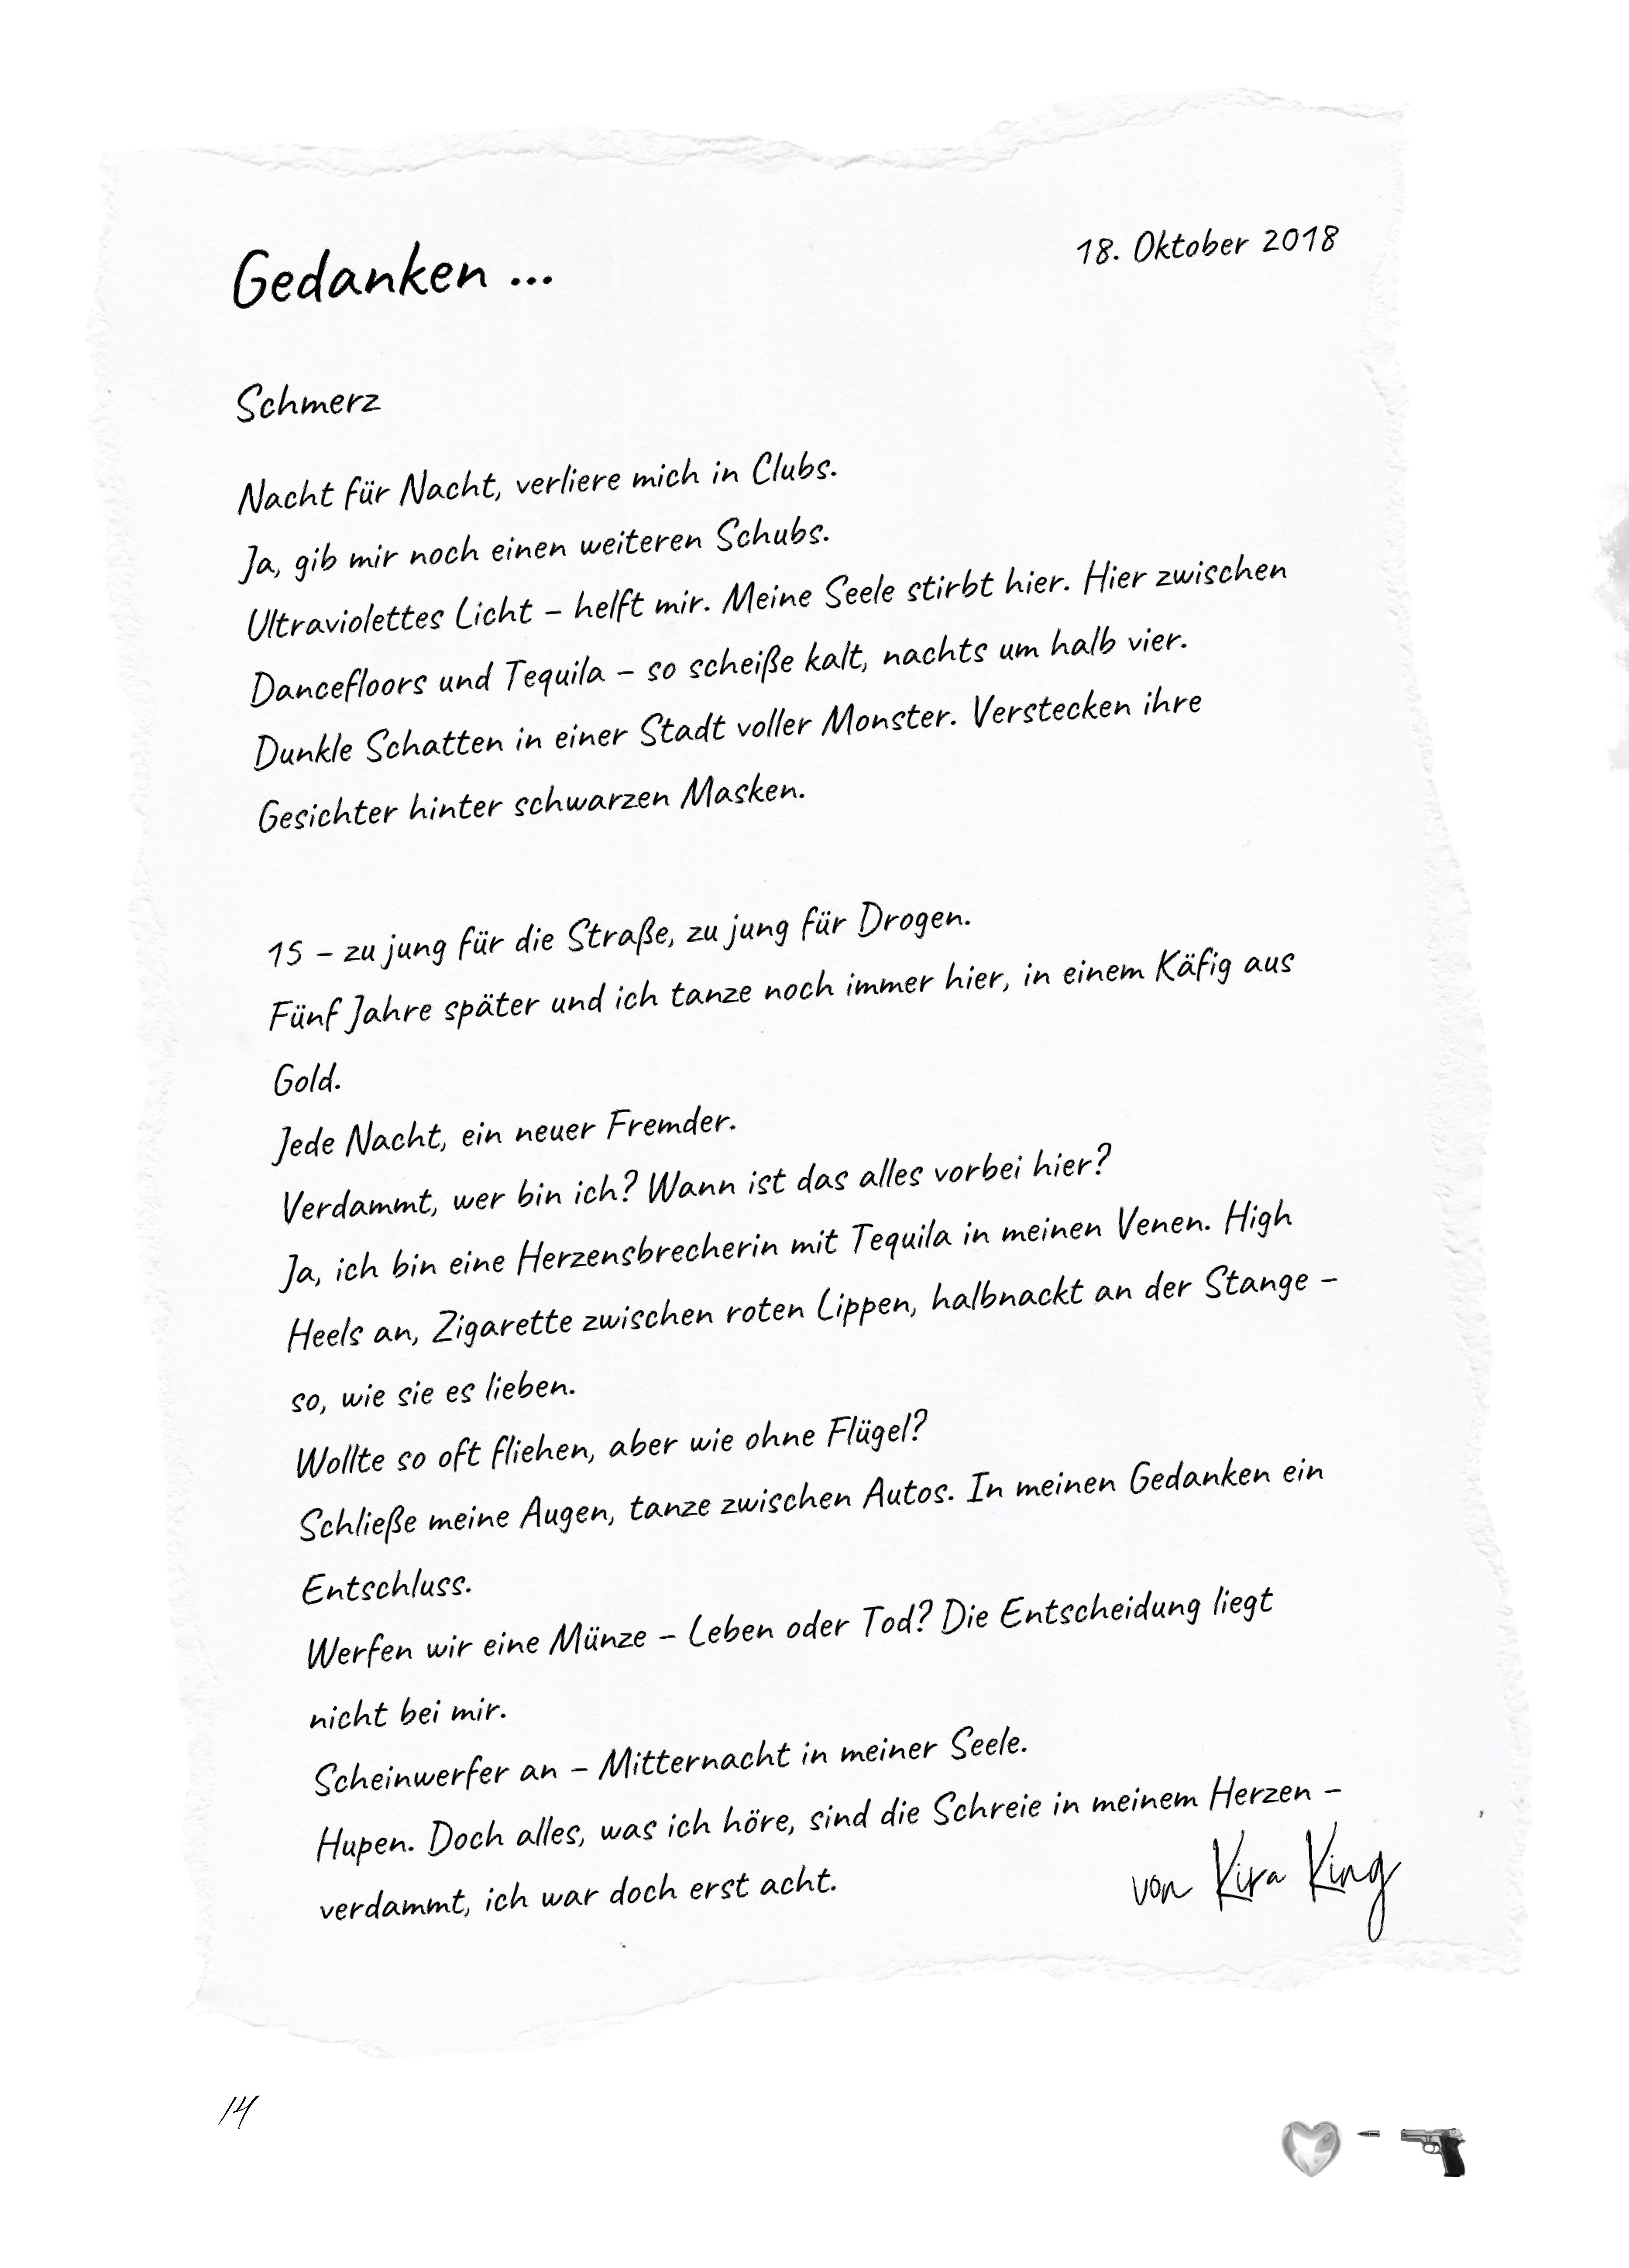 Gedanken ...
18. Oktober 2018
Schmerz
Nacht für Nacht, verliere mich in Clubs.
Ja, gib mir noch einen weiteren Schubs.
Ultraviolettes Licht – helft mir. Meine Seele stirbt hier. Hier zwischen
Dancefloors und Tequila – so scheiße kalt, nachts um halb vier.
Dunkle Schatten in einer Stadt voller Monster. Verstecken ihre
Gesichter hinter schwarzen Masken.
15 – zu jung für die Straße, zu jung für Drogen.
Fünf Jahre später und ich tanze noch immer hier, in einem Käfig aus
Gold.
Jede Nacht, ein neuer Fremder.
Verdammt, wer bin ich? Wann ist das alles vorbei hier?
Ja, ich bin eine Herzensbrecherin mit Tequila in meinen Venen. High
Heels an, Zigarette zwischen roten Lippen, halbnackt an der Stange –
so, wie sie es lieben.
Wollte so oft fliehen, aber wie ohne Flügel?
Schließe meine Augen, tanze zwischen Autos. In meinen Gedanken ein
Entschluss.
Werfen wir eine Münze – Leben oder Tod? Die Entscheidung liegt
nicht bei mir.
Scheinwerfer an – Mitternacht in meiner Seele.
Hupen. Doch alles, was ich höre, sind die Schreie in meinem Herzen –
verdammt, ich war doch erst acht.
von Kira King
14